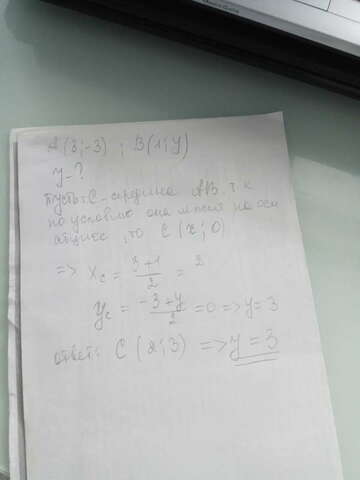 A(3;-3) ; B(1;y)
y-?
Пусть C - середина AB, т.к
по условию она лежит на оси
абцисс, то C(x;0)
=> Xc = 3+1/2 = 2
Yc = -3+y/2 = 0 => y = 3
ответ: C(2;3) => y = 3